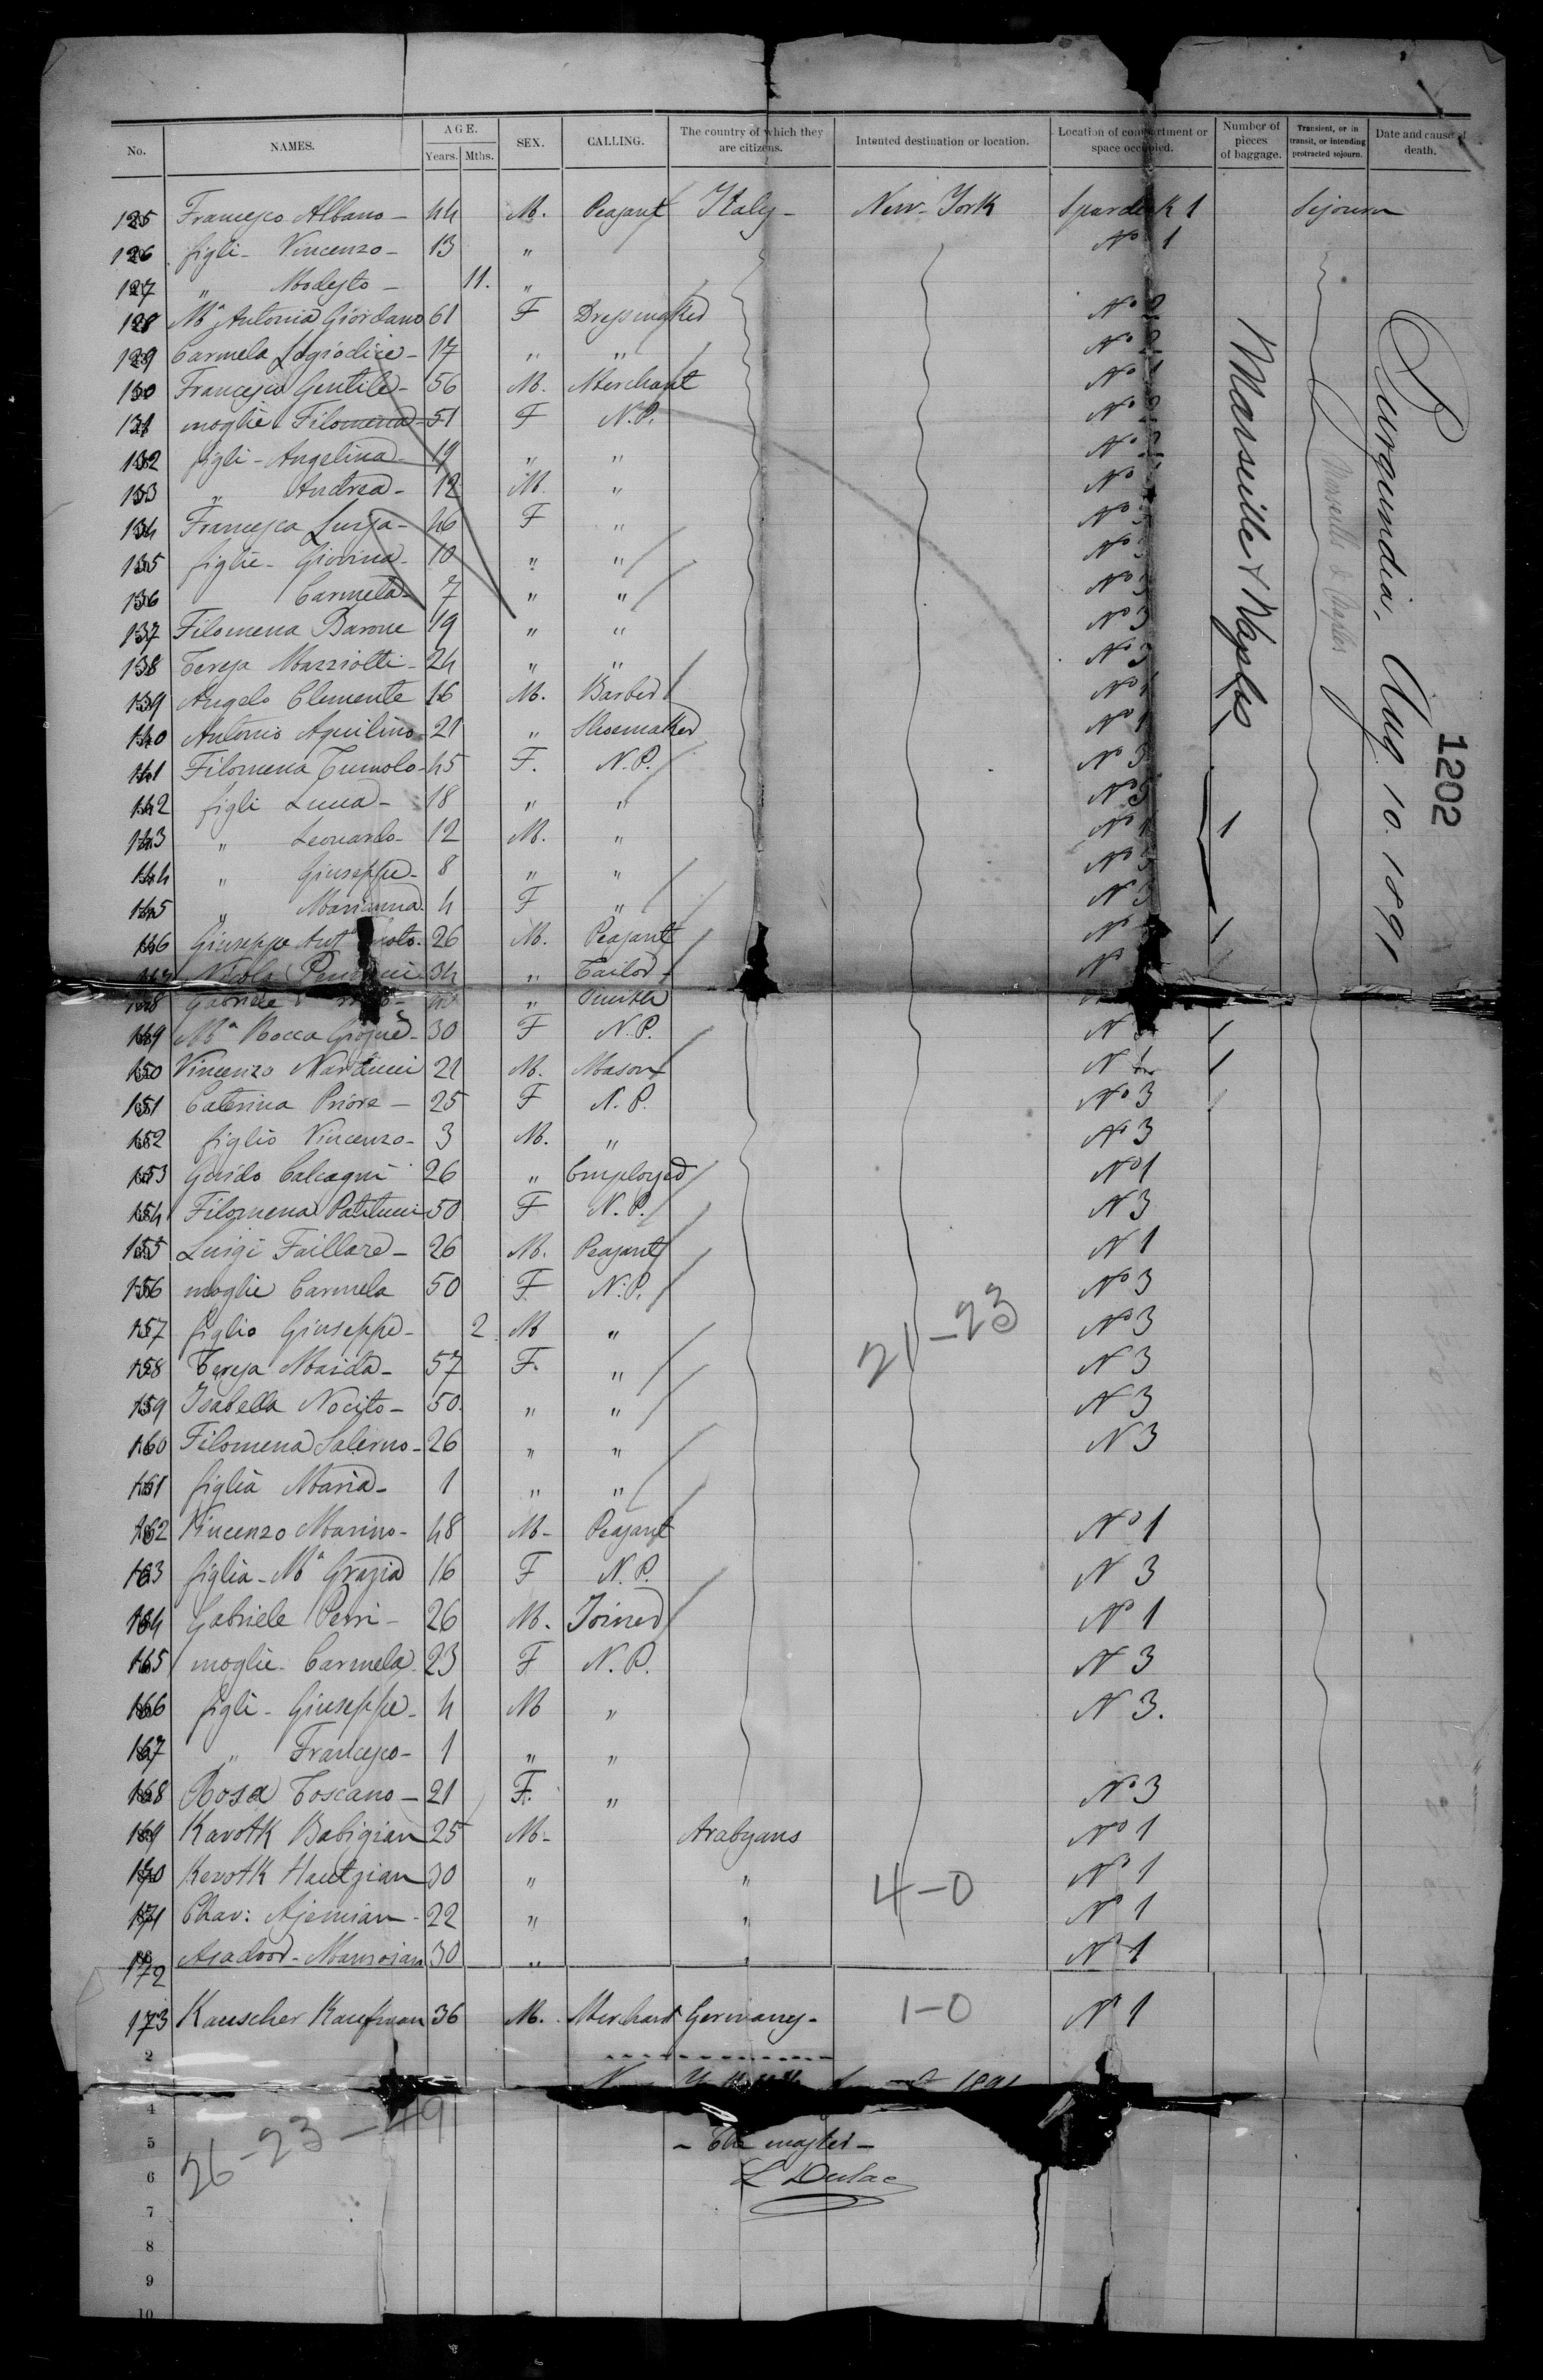 No. NAMES. AGE. Years. Mths. SEX. CALLING. The country of which they are citizens. Intented destination or location. Location of compartment or space occupied. Number of pieces of baggage. Transient, or in transit, or intending protracted sojourn. Date and cause of death.
125 Francesco Albano - 44 M. Peasant Italy - New-York Spardeck 1 Sejourn
126 figli - Vincenzo - 13 " No 1
127 " Modesto - 11. "
128 Ma Antonia Giordano 61 F Dressmaker No 2
129 Carmela Logiodice - 17 " " No 2
130 Francesco Gentile - 56 M. Merchant No 1
131 moglie Filomena - 51 F N.P. No 2
132 figli - Angelina - 19 " " No 2
133 " Andrea - 12 M. " No
134 Francesca Luisa - 46 F " No 3
135 figlie - Giovina - 10 " " No 3
136 Carmela - 7 " " No 3
137 Filomena Barone 19 " " No 3
138 Teresa Mazziotti - 24 " " No 3
139 Angelo Clemente 16 M. Barber No 1 1
140 Antonio Aquilino - 21 " Shoemaker No 1 1
141 Filomena Tumolo - 45 F. N.P. No 3
142 figli Lucia - 18 " " No 3
143 " Leonardo - 12 M. " No 1 1
144 " Giuseppe - 8 " " No 3
145 " Marianna - 4 F " No 3
146 Giuseppe Anto 26 M. Peasant No 1
147 Nicola 34 " Tailor No
148 Gabriele "
149 Ma Rocca 30 F N.P. N 3 1
150 Vincenzo Narducci 21 M. Mason N 1 1
151 Caterina Priore - 25 F N.P. No 3
152 figlio Vincenzo - 3 M. " No 3
153 Guido Calcagni 26 " Employed No 1
154 Filomena Patitucci 50 F N.P. N 3
155 Luigi Faillare - 26 M. Peasant N 1
156 moglie Carmela 50 F N.P. No 3
157 figlio Giuseppe - 2 M " No 3
21-23
158 Teresa Maida - 57 F. " N 3
159 Isabella Nocito - 50. " " N 3
160 Filomena Salerno - 26 " " N 3
161 figlia Maria - 1 " "
162 Vincenzo Marino - 48 M - Peasant No 1
163 figlia - Ma Grazia 16 F N.P. N 3
164 Gabriele Perri - 26 M. Joiner No 1
165 moglie - Carmela - 23 F N.P. N 3
166 figli - Giuseppe - 4 M " N 3.
167 " Francesco - 1 " "
168 Rosa Toscano - 21 F. " No 3
169 Kavotk Babigian 25 M - Arabyans No 1
170 Kevotk Hautzian 30 " " No 1
4-0
171 Chav: Ajemian - 22 " " No 1
172 Asadoor - Manzoian 30 " " No 1
173 Kauscher Kaufman 36 M. Merchant Germany - 1-0 No 1
2
1891
4
5 - The master -
26-23-49
6 L Dulac
7
8
9
10
Marseille & Naples
Marseille & Naples
Burgundia, Aug 10. 1891
1202